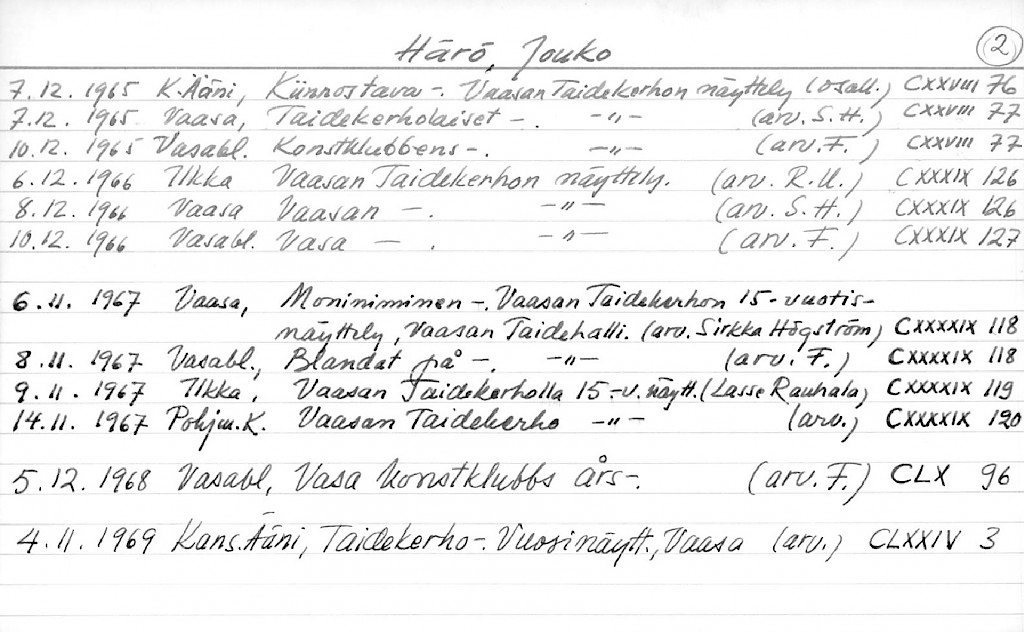 Härö, Jouko 2
7.12.1965 K.Ääni, Kiinnostava -. Vaasan Taidekerhon näyttely (osall.) CXXVIII 76
7.12.1965 Vaasa, Taidekerholaiset -. -"- (arv. S.H.) CXXVIII 77
10.12.1965 Vasabl. Konstklubbens -. -"- (arv. F.) CXXVIII 77
6.12.1966 Ilkka Vaasan Taidekerhon näyttely. (arv. R.U.) CXXXIX 126
8.12.1966 Vaasa Vaasan -. -"- (arv. S.H.) CXXXIX 126
10.12.1966 Vasabl. Vasa - . -"- (arv. F.) CXXXIX 127
6.11.1967 Vaasa, Moniniminen -. Vaasan Taidekerhon 15-vuotis-
näyttely, Vaasan Taidehalli. (arv. Sirkka Högström) CXXXXIX 118
8.11.1967 Vasabl., Blandat på -. -"- (arv. F.) CXXXXIX 118
9.11.1967 Ilkka, Vaasan Taidekerholla 15-v. näytt. (Lasse Rauhala) CXXXXIX 119
14.11.1967 Pohjan.K. Vaasan Taidekerho -"- (arv.) CXXXXIX 120
5.12.1968 Vasabl, Vasa konstklubbs års-. (arv. F.) CLX 96
4.11.1969 Kans.Ääni, Taidekerho-. Vuosinäytt., Vaasa (arv.) CLXXIV 3